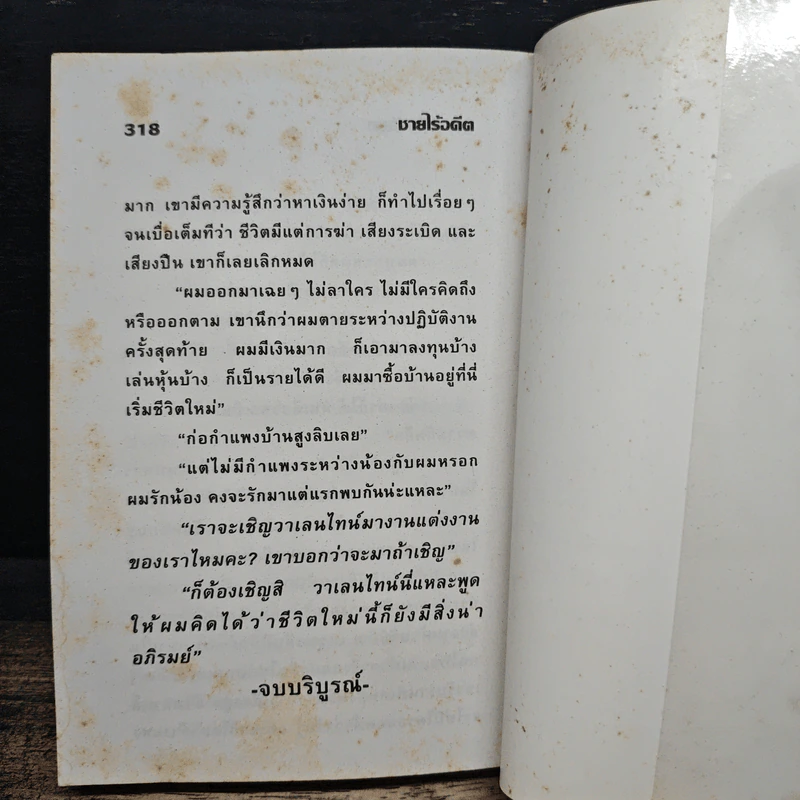 318
ชายไร้อดีต
มาก เขามีความรู้สึกว่าหาเงินง่าย ก็ทำไปเรื่อยๆ
จนเบื่อเต็มทีว่า ชีวิตมีแต่การฆ่า เสียงระเบิด และ
เสียงปืน เขาก็เลยเลิกหมด
“ผมออกมาเฉยๆ ไม่ลาใคร ไม่มีใครคิดถึง
หรือออกตาม เขานึกว่าผมตายระหว่างปฏิบัติงาน
ครั้งสุดท้าย ผมมีเงินมาก ก็เอามาลงทุนบ้าง
เล่นหุ้นบ้าง ก็เป็นรายได้ดี ผมมาซื้อบ้านอยู่ที่นี่
เริ่มชีวิตใหม่”
“ก่อกำแพงบ้านสูงลิบเลย”
“แต่ไม่มีกำแพงระหว่างน้องกับผมหรอก
ผมรักน้อง คงจะรักมาแต่แรกพบกันน่ะแหละ”
“เราจะเชิญวาเลนไทน์มางานแต่งงาน
ของเราไหมคะ? เขาบอกว่าจะมาถ้าเชิญ”
“ก็ต้องเชิญสิ วาเลนไทน์นี่แหละพูด
ให้ผมคิดได้ว่าชีวิตใหม่นี้ก็ยังมีสิ่งน่า
อภิรมย์”
-จบบริบูรณ์-